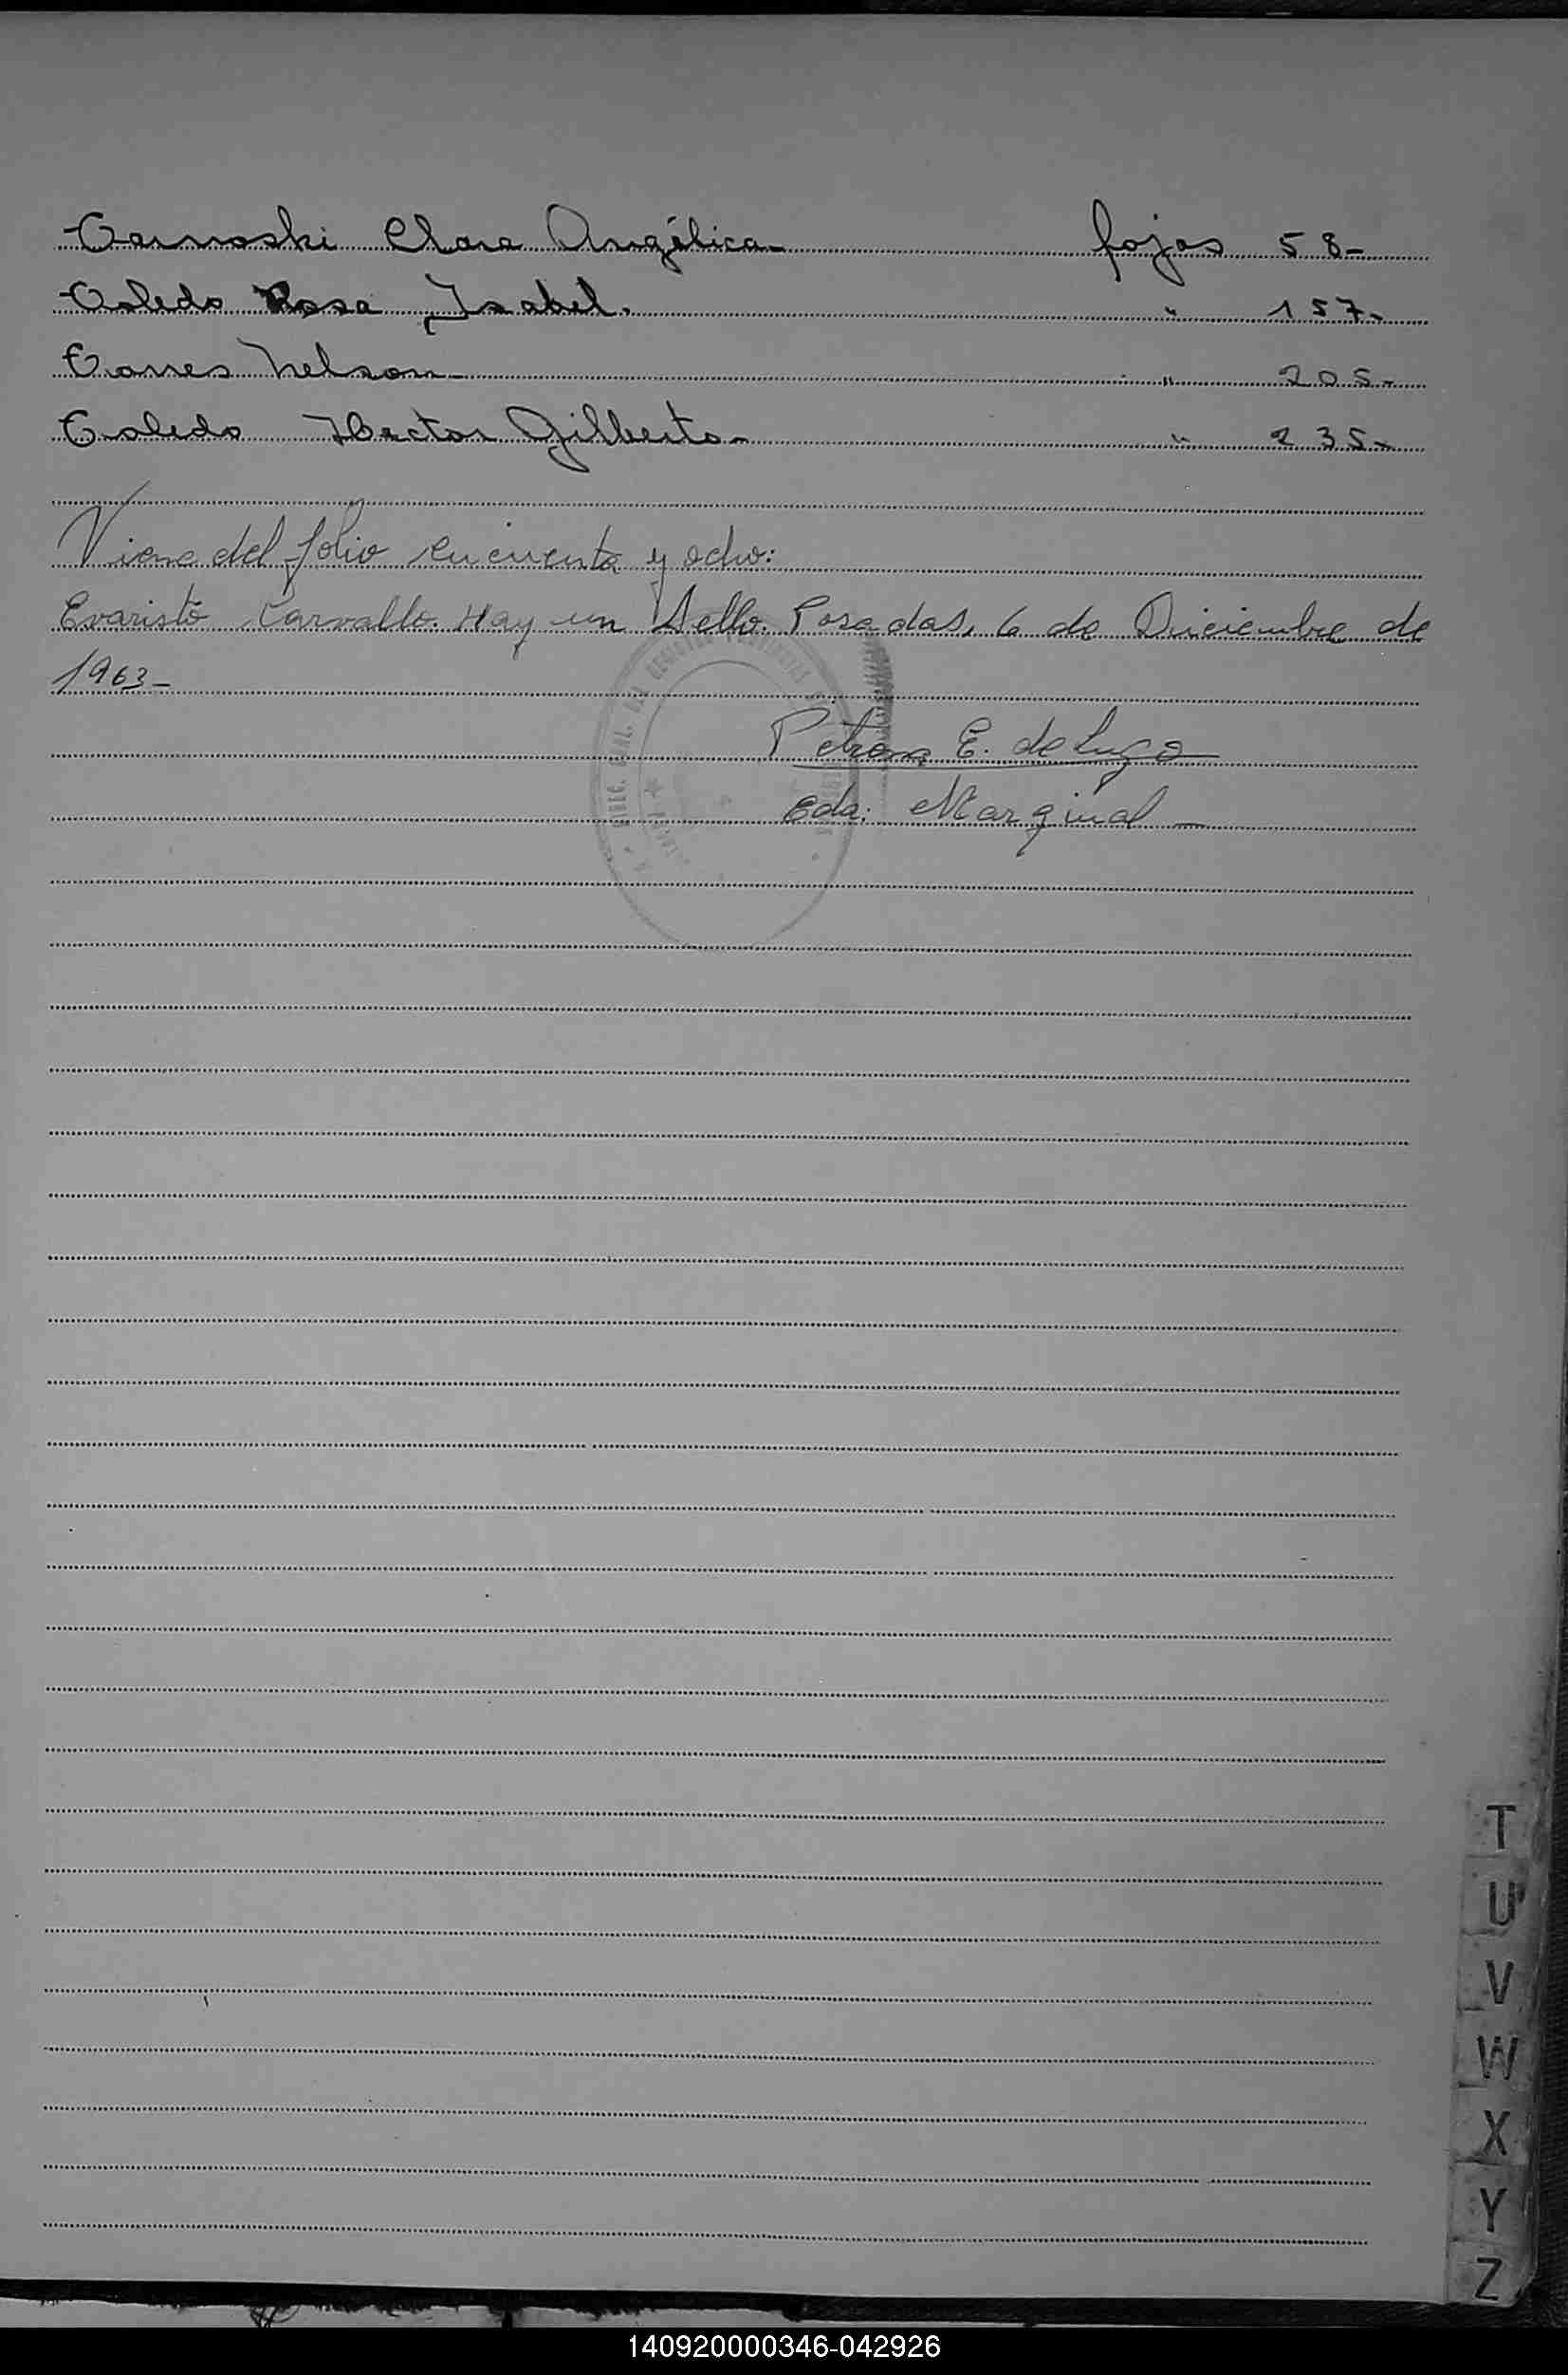 Tarnoski Clara Angélica- fojas 58-
Toledo Rosa Isabel. " 157-
Torres Nelson- " 205-
Toledo Hector Gilberto- " 235-
Viene del folio cincuenta y ocho:
Evaristo Carvallo. Hay un Sello. Posadas, 6 de Diciembre de
1963-
Petrona E. de Lugo
Eda: Marginal -
T
U
V
W
X
Y
Z
140920000346-042926